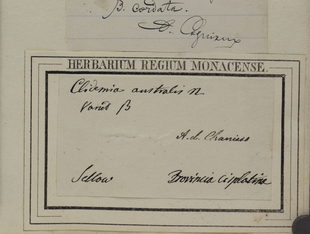 β. cordata.
HERBARIUM REGIUM MONACENSE.
Clidemia australis n
Variet β
A. de Chamisso
Sellow Provincia cisplatina